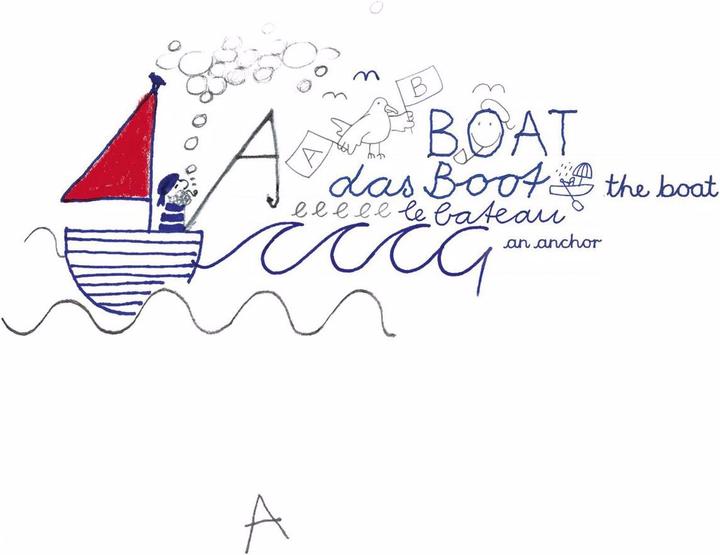 A
A B
BOAT
das Boot the boat
eeeee le bateau
an anchor
A